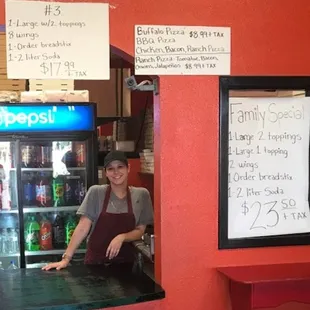 #3
1-Large w/2 toppings
8 wings
1-Order breadstix
1-2 liter soda
$17.99 TAX
Buffalo Pizza $8.99 + TAX
BBQ Pizza
Chicken, Bacon, Ranch Pizza
Ranch Pizza
Bacon,
Jalapeños $8.99 + TAX
pepsi
Family Special
1-Large 2 toppings
1-Large 1 topping
2 wings
1 Order breadstix
1-2 liter Soda
$23.50 + TAX